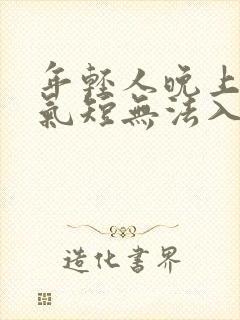 年輕人晚上
氣短無法入
造化書界